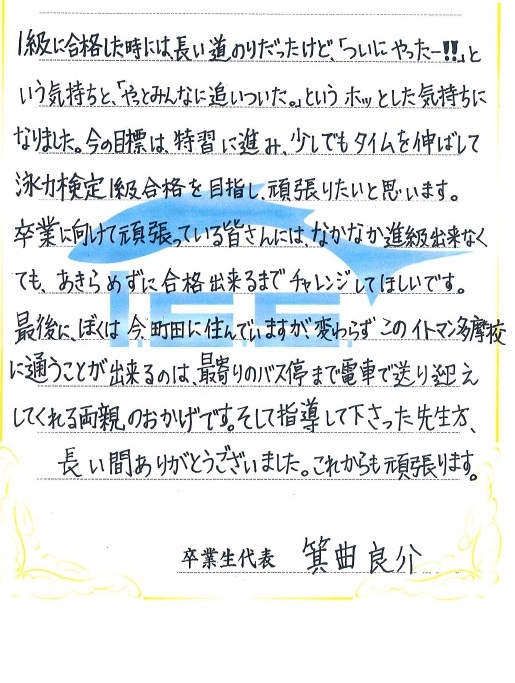 1級に合格した時には、長い道のりだったけど、「ついにやったー!!」と
いう気持ちと、「やっとみんなに追いついた。」というホッとした気持ちに
なりました。今の目標は、特習に進み、少しでもタイムを伸ばして
泳力検定1級合格を目指し、頑張りたいと思います。
卒業に向けて頑張っている皆さんには、なかなか進級出来なく
ても、あきらめずに合格出来るまでチャレンジしてほしいです。
最後に、ぼくは今、町田に住んでいますが、変わらずこのイトマン多摩校
に通うことが出来るのは、最寄りのバス停まで電車で送り迎え
してくれる両親のおかげです。そして指導して下さった先生方、
長い間ありがとうございました。これからも頑張ります。
卒業生代表 箕曲良介